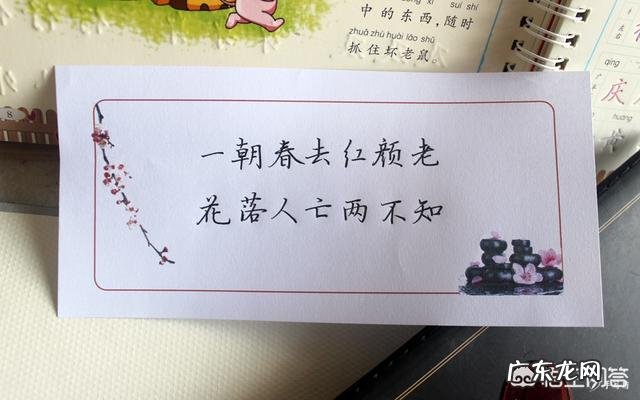 中的东西，随时
zhuā zhù huài lǎo shǔ
抓住坏老鼠。
8
qìng
庆
一朝春去红颜老
花落人亡两不知
广东龙网